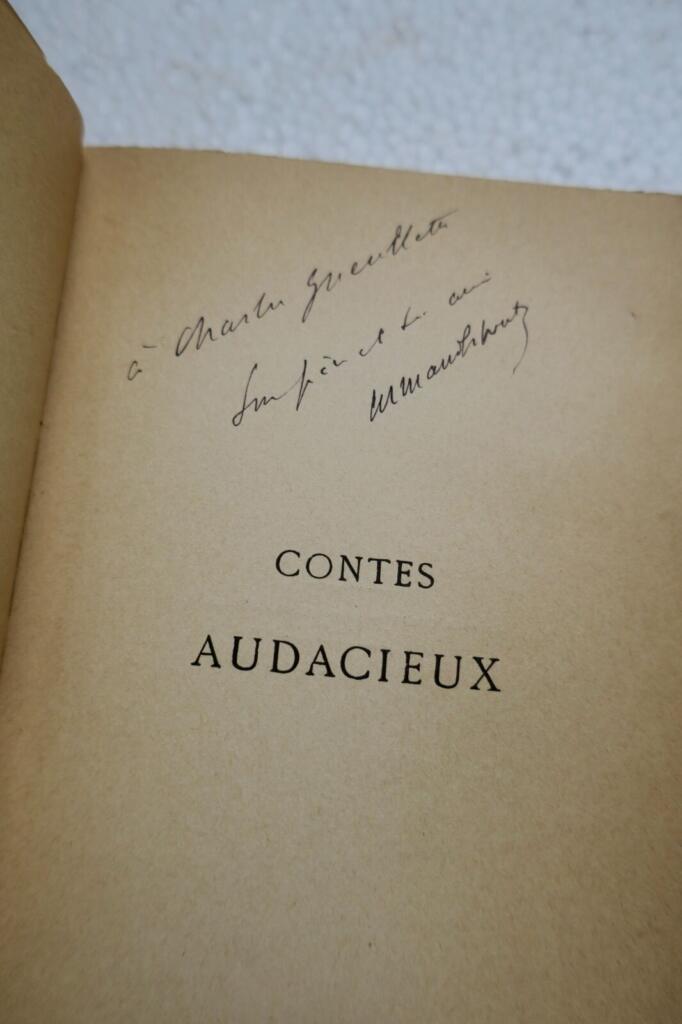 à Charles Gueullette
Son frère et son ami
Armand Silvestre
CONTES
AUDACIEUX